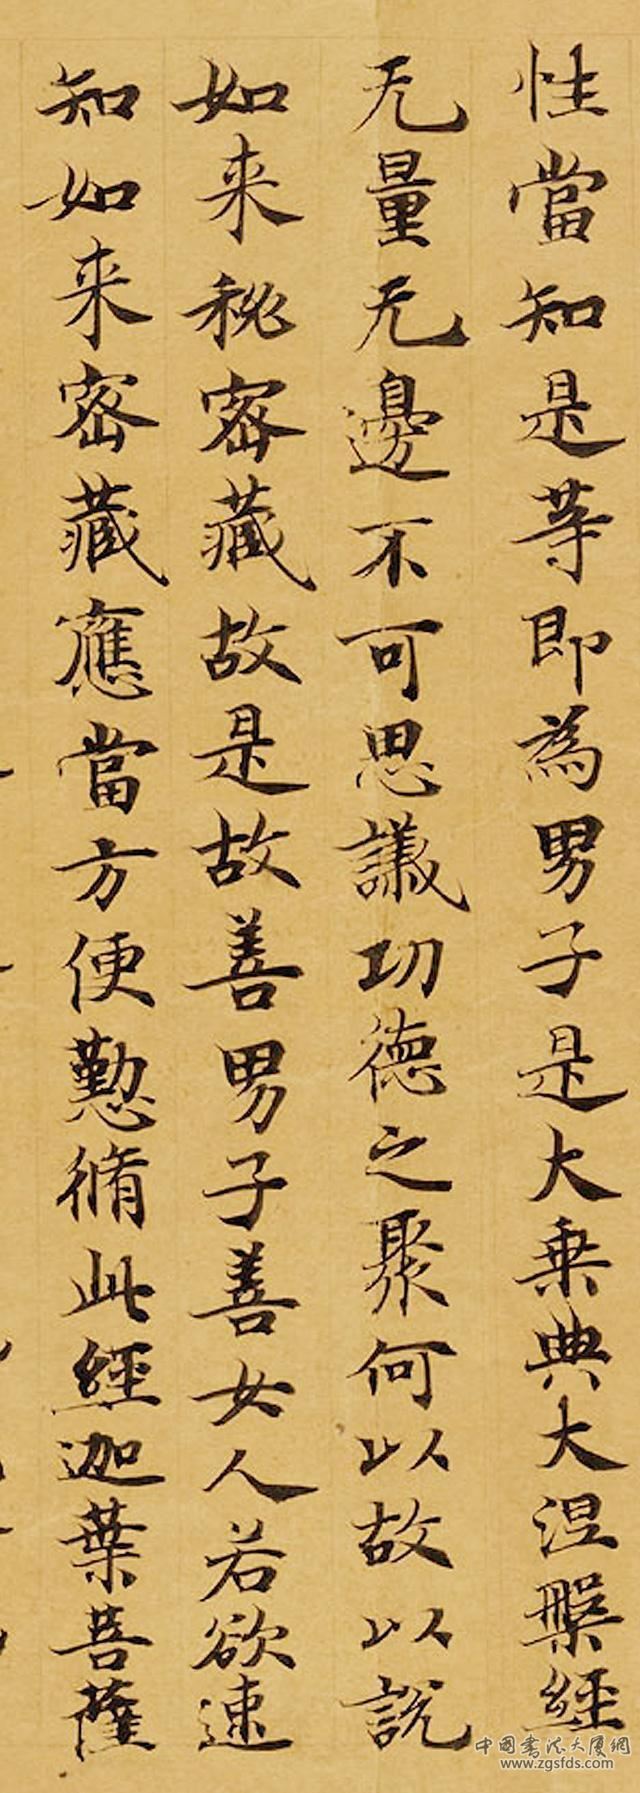 性當知是等即為男子是大乘典大涅槃經
无量无邊不可思議功德之聚何以故以說
如来秘密藏故是故善男子善女人若欲速
知如来密藏應當方便懃脩此經迦葉菩薩
中国书法大厦網
www.zgsfds.com